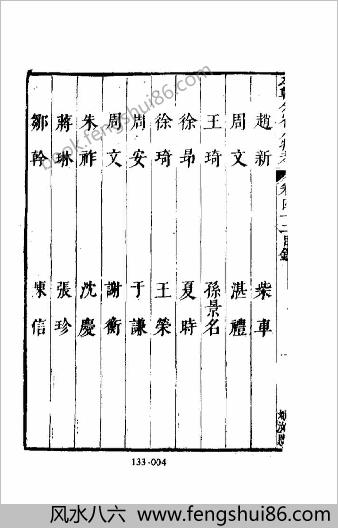 卷四十二目錄
趙新 柴車
周文 湛禮
王琦 孫景名
徐昂 夏時
徐琦 王榮
周安 于謙
周文 謝衡
朱祚 沈慶
蔣琳 張珍
鄒幹 陳信
133-004
book.fengshui86.com
风水八六 www.fengshui86.com